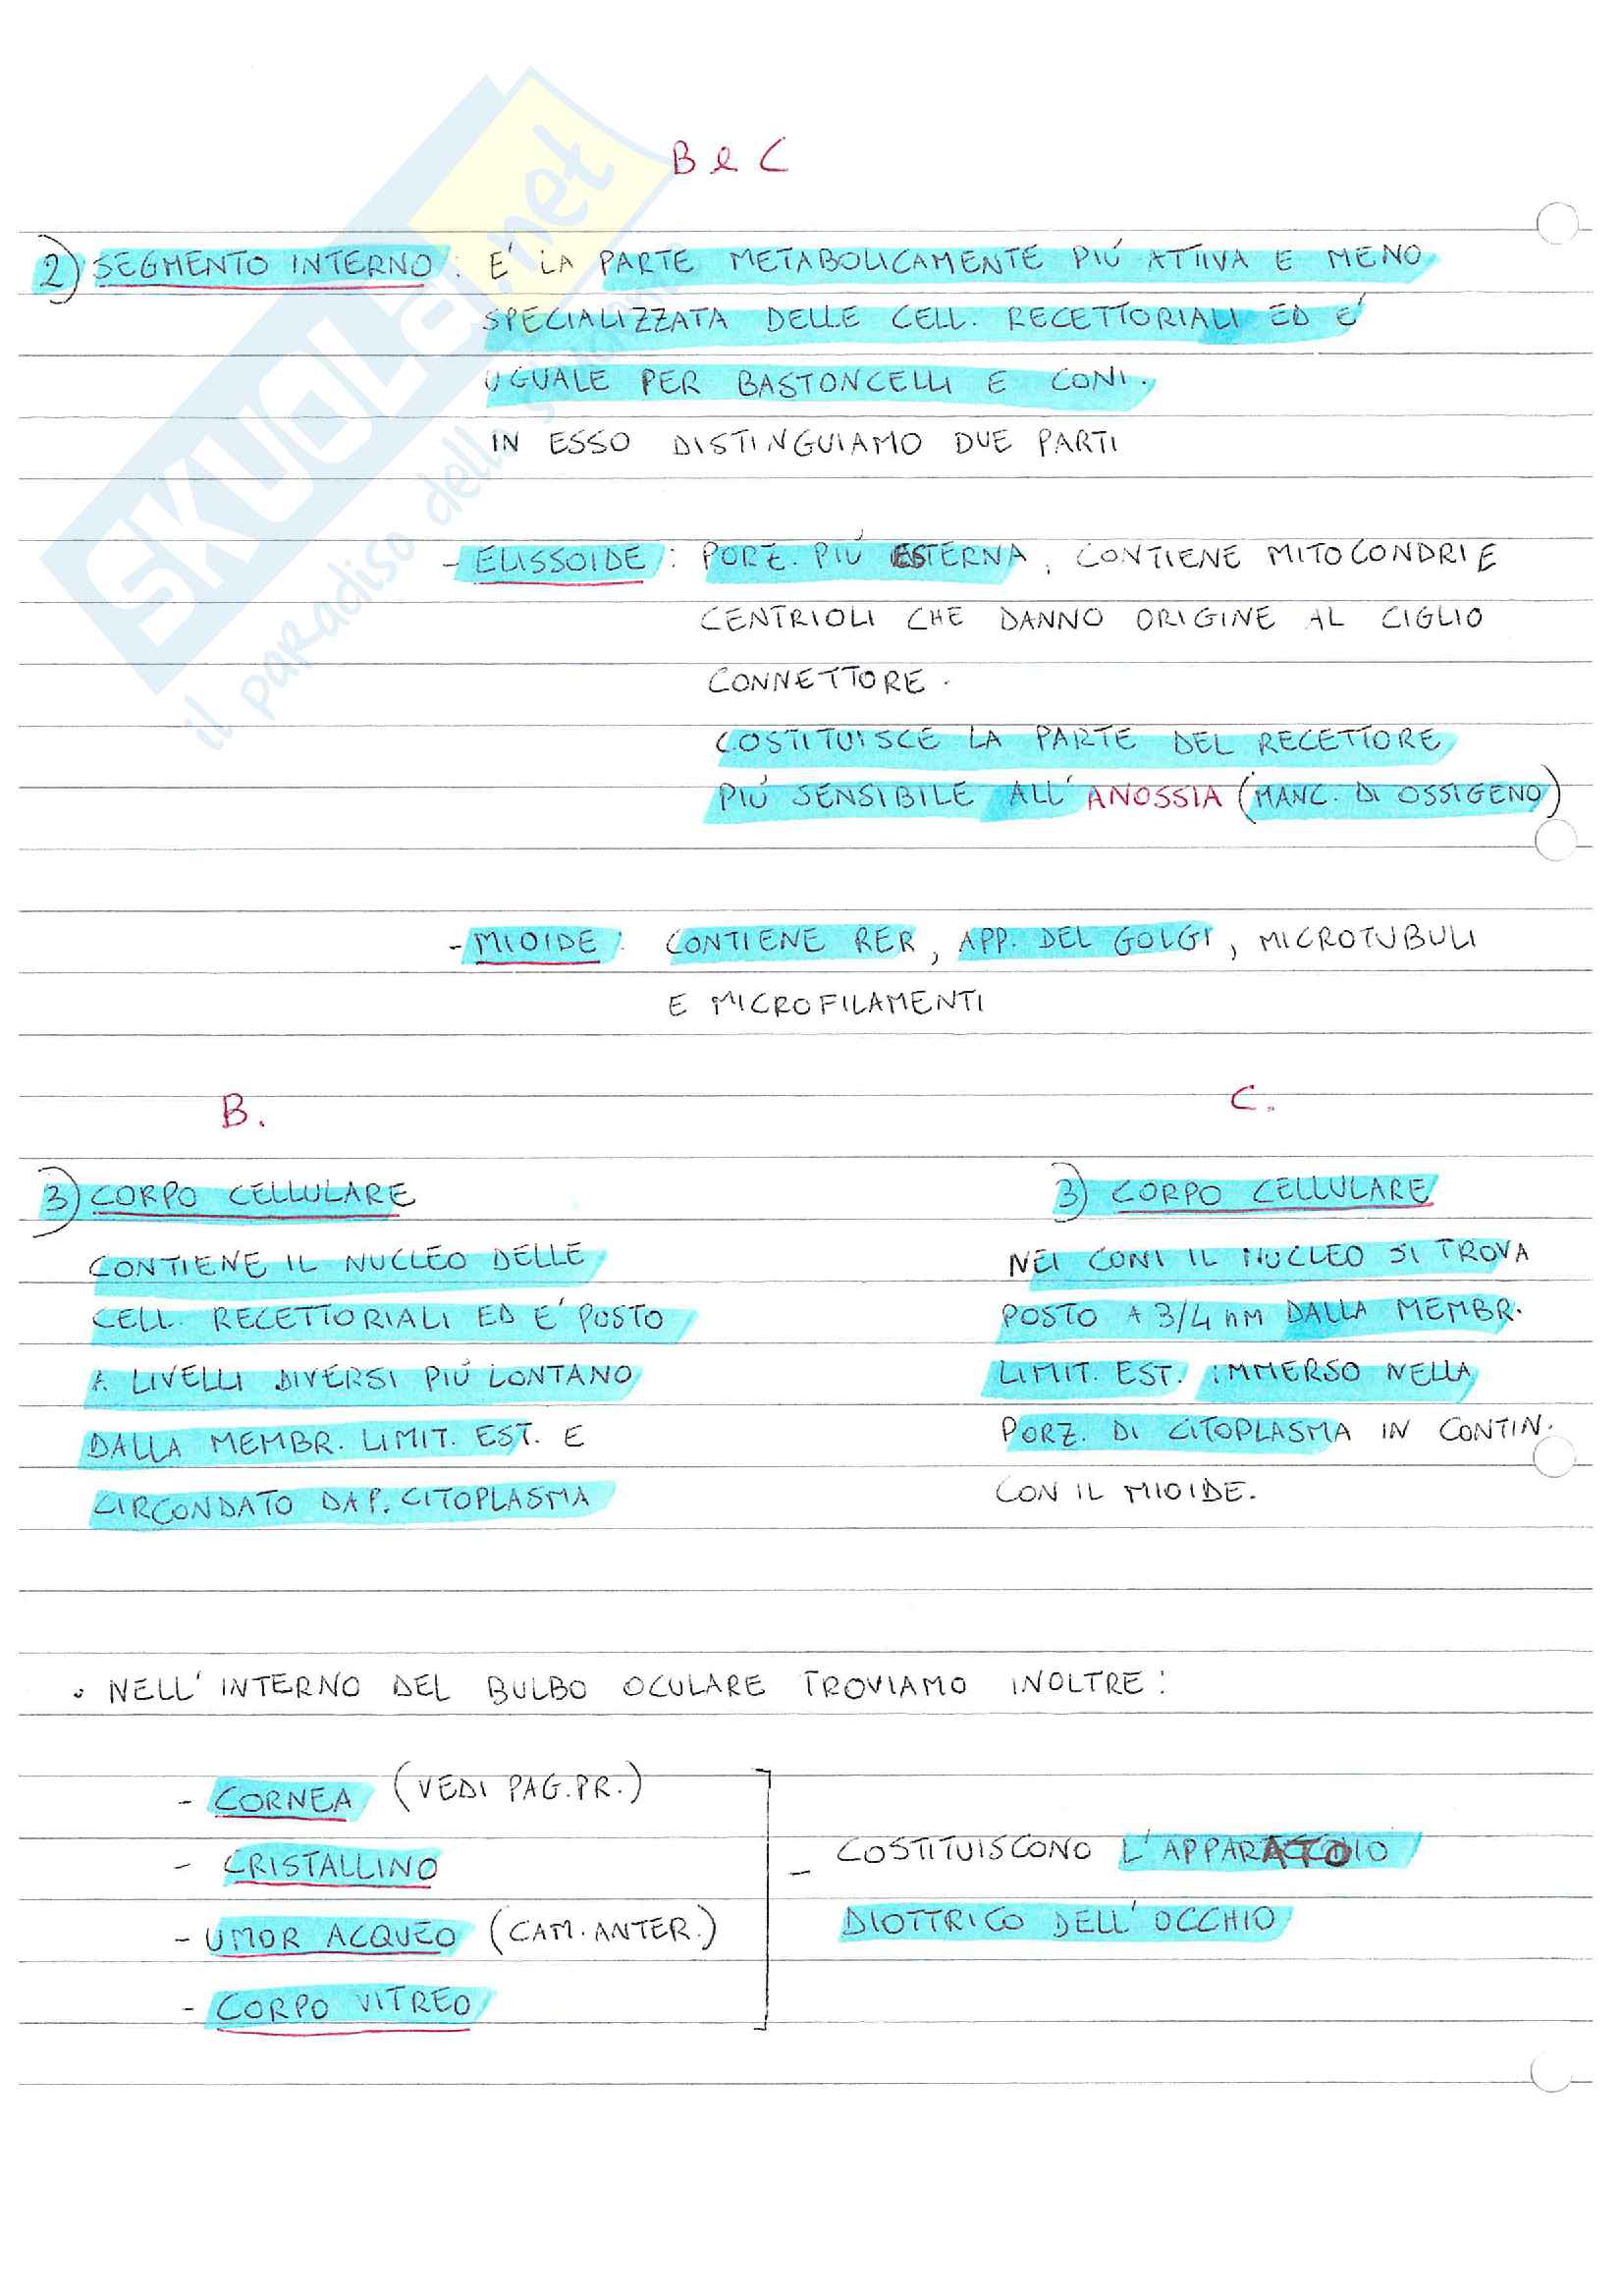 B e C
2) SEGMENTO INTERNO : E' LA PARTE METABOLICAMENTE PIÚ ATTIVA E MENO
SPECIALIZZATA DELLE CELL. RECETTORIALI ED E'
UGUALE PER BASTONCELLI E CONI.
IN ESSO DISTINGUIAMO DUE PARTI
- ELISSOIDE : PORZ. PIÚ ESTERNA, CONTIENE MITOCONDRI E
CENTRIOLI CHE DANNO ORIGINE AL CIGLIO
CONNETTORE.
COSTITUISCE LA PARTE DEL RECETTORE
PIÚ SENSIBILE ALL'ANOSSIA (MANC. DI OSSIGENO)
- MIOIDE : CONTIENE RER, APP. DEL GOLGI, MICROTUBULI
E MICROFILAMENTI
B.
3) CORPO CELLULARE
CONTIENE IL NUCLEO DELLE
CELL. RECETTORIALI ED E' POSTO
A LIVELLI DIVERSI PIÚ LONTANO
DALLA MEMBR. LIMIT. EST. E
CIRCONDATO DA P. CITOPLASMA
C.
3) CORPO CELLULARE
NEI CONI IL NUCLEO SI TROVA
POSTO A 3/4 nM DALLA MEMBR.
LIMIT. EST. IMMERSO NELLA
PORZ. DI CITOPLASMA IN CONTIN.
CON IL MIOIDE.
• NELL'INTERNO DEL BULBO OCULARE TROVIAMO INOLTRE :
- CORNEA (VEDI PAG. PR.)
- CRISTALLINO
- UMOR ACQUEO (CAM. ANTER.)
- CORPO VITREO
- COSTITUISCONO L'APPARATO
DIOTTRICO DELL'OCCHIO
SKUOLA.net
il paradiso dello studente